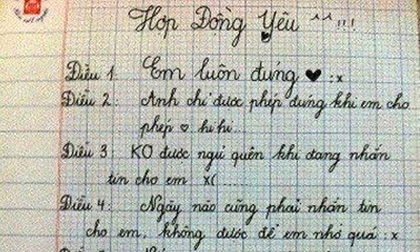 Hợp Đồng Yêu ^^ !!!
Điều 1: Em luôn đúng ♥ :x
Điều 2: Anh chỉ được phép đúng khi em cho
phép ♡ hi hi...
Điều 3: KO được ngủ quên khi đang nhắn
tin cho em x( .....
Điều 4: Ngày nào cũng phải nhắn tin
cho em, không được để em nhớ quá :x